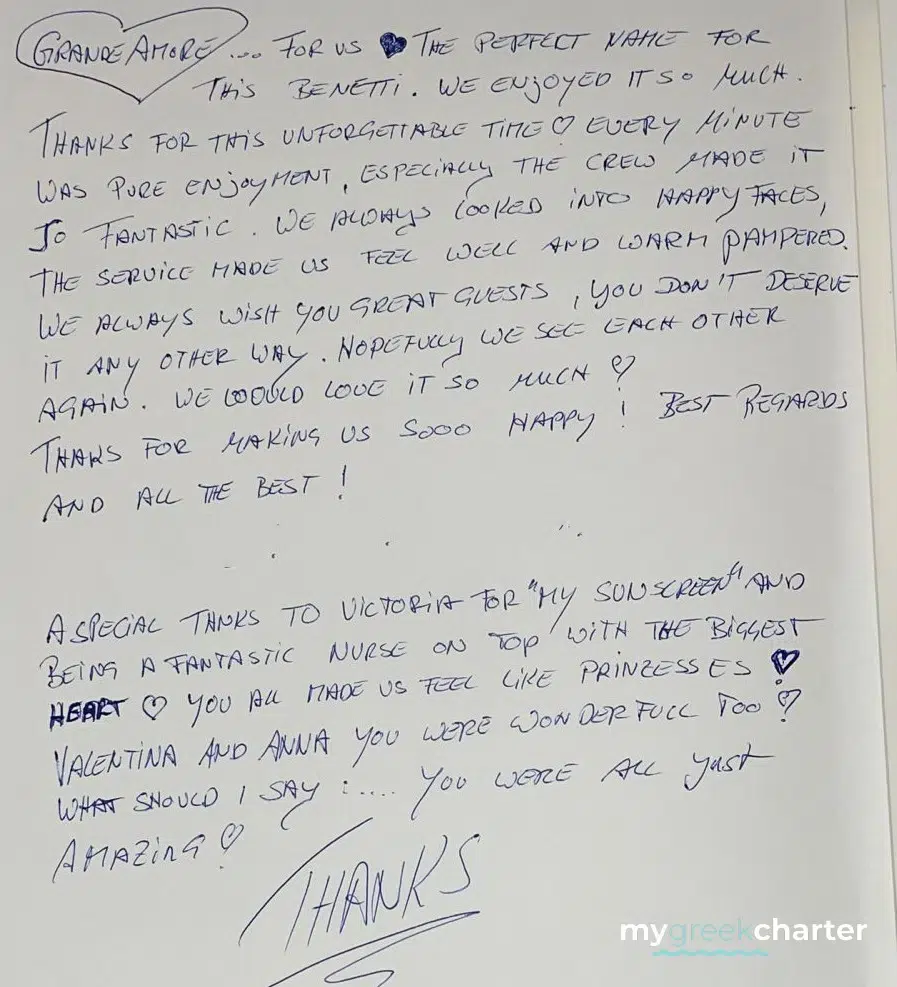 GRANDE AMORE ... FOR US ♥ THE PERFECT NAME FOR
THIS BENETTI. WE ENJOYED IT SO MUCH.
THANKS FOR THIS UNFORGETTABLE TIME ♡ EVERY MINUTE
WAS PURE ENJOYMENT, ESPECIALLY THE CREW MADE IT
SO FANTASTIC. WE ALWAYS LOOKED INTO HAPPY FACES,
THE SERVICE MADE US FEEL WELL AND WARM PAMPERED.
WE ALWAYS WISH YOU GREAT GUESTS, YOU DON'T DESERVE
IT ANY OTHER WAY. HOPEFULLY WE SEE EACH OTHER
AGAIN. WE WOULD LOVE IT SO MUCH ♡
THANKS FOR MAKING US SOOO HAPPY! BEST REGARDS
AND ALL THE BEST!
A SPECIAL THANKS TO VICTORIA FOR "MY SUNSCREEN" AND
BEING A FANTASTIC NURSE ON TOP WITH THE BIGGEST
HEART ♡ YOU ALL MADE US FEEL LIKE PRINZESSES ♡
VALENTINA AND ANNA YOU WERE WONDERFULL TOO ♡
WHAT SHOULD I SAY :.... YOU WERE ALL YUST
AMAZING ♡
THANKS
mygreekcharter